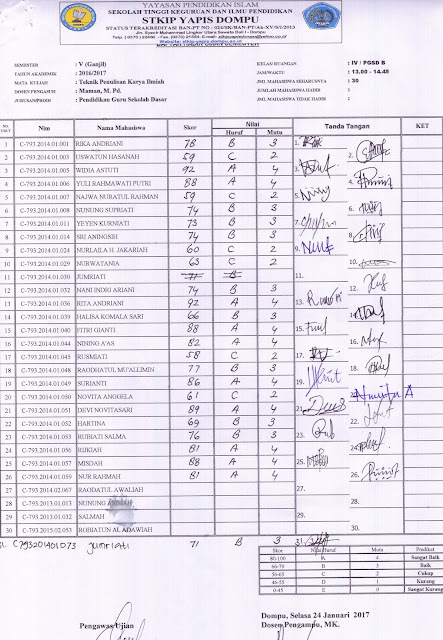 YAYASAN PENDIDIKAN ISLAM
SEKOLAH TINGGI KEGURUAN DAN ILMU PENDIDIKAN
STKIP YAPIS DOMPU
SEMESTER : V (Ganjil) RUANGAN : IV / PGSD B
TAHUN AKADEMIK : 2016/2017 JAM/WAKTU : 13.00 - 14.45
MATA KULIAH : Teknik Penulisan Karya Ilmiah JML MAHASISWA SEHARUSNYA : 30
DOSEN PENGASUH : Maman, M. Pd. JUMLAH MAHASISWA HADIR :
JURUSAN/PRODI : Pendidikan Guru Sekolah Dasar JML MAHASISWA TIDAK HADIR :
NO. URUT Nim Nama Mahasiswa Skor Nilai Huruf Mutu Tanda Tangan KET
1 C-793.2014.01.001 RIKA ANDRIANI 78 B 3 1.
2 C-793.2014.01.003 USWATUN HASANAH 59 C 2 2.
3 C-793.2014.01.005 WIDIA ASTUTI 92 A 4 3.
4 C-793.2014.01.006 YULI RAHMAWATI PUTRI 88 A 4 4.
5 C-793.2014.01.007 NAJWA NURATUL RAHMAN 59 C 2 5.
6 C-793.2014.01.008 NUNUNG SUPRIATI 74 B 3 6.
7 C-793.2014.01.011 YEYEN KURNIATI 73 B 3 7.
8 C-793.2014.01.014 SRI ANINGSIH 74 B 3 8.
9 C-793.2014.01.024 NURLAILA H. JAKARIAH 60 C 2 9.
10 C-793.2014.01.029 NURWATANIA 63 C 2 10.
11 C-793.2014.01.030 JUMRIATI 71 B 11.
12 C-793.2014.01.032 NANI INDRI ARIANI 74 B 3 12.
13 C-793.2014.01.036 RITA ANDRIANI 92 A 4 13.
14 C-793.2014.01.039 HALISA KOMALA SARI 66 B 3 14.
15 C-793.2014.01.040 FITRI GIANTI 88 A 4 15.
16 C-793.2014.01.044 NINING A'AS 82 A 4 16.
17 C-793.2014.01.045 RUSMIATI 58 C 2 17.
18 C-793.2014.01.048 RAODHATUL MU'ALLIMIN 77 B 3 18.
19 C-793.2014.01.049 SURIANTI 86 A 4 19.
20 C-793.2014.01.050 NOVITA ANGGELA 61 C 2
21 C-793.2014.01.051 DEVI NOVITASARI 89 A 4 21.
22 C-793.2014.01.052 HARTINA 69 B 3 22.
23 C-793.2014.01.053 RUBIATI SALMA 76 B 3 23.
24 C-793.2014.01.056 RIJKIAH 81 A 4 24.
25 C-793.2014.01.057 MISDAH 88 A 4 25.
26 C-793.2014.01.059 NUR RAHMAH 81 A 4 26.
27 C-793.2012.01.067 RAODATUL AWALIAH 27.
28 C-793.2013.01.013 NUNUNG
29 C-793.2013.01.032 SALMAH 29.
30 C-793.2015.02.053 ROBIATUN AL ADAWIAH 30.
31. C793201401073 Jumriati 71 B 3 31.
Skor Nilai Huruf Mutu Predikat
80-100 A 4 Sangat Baik
66-79 B 3 Baik
56-65 C 2 Cukup
46-55 D 1 Kurang
0-45 E 0 Sangat Kurang
Dompu, Selasa 24 Januari 2017
Pengawas Ujian Dosen Pengampu, MK.